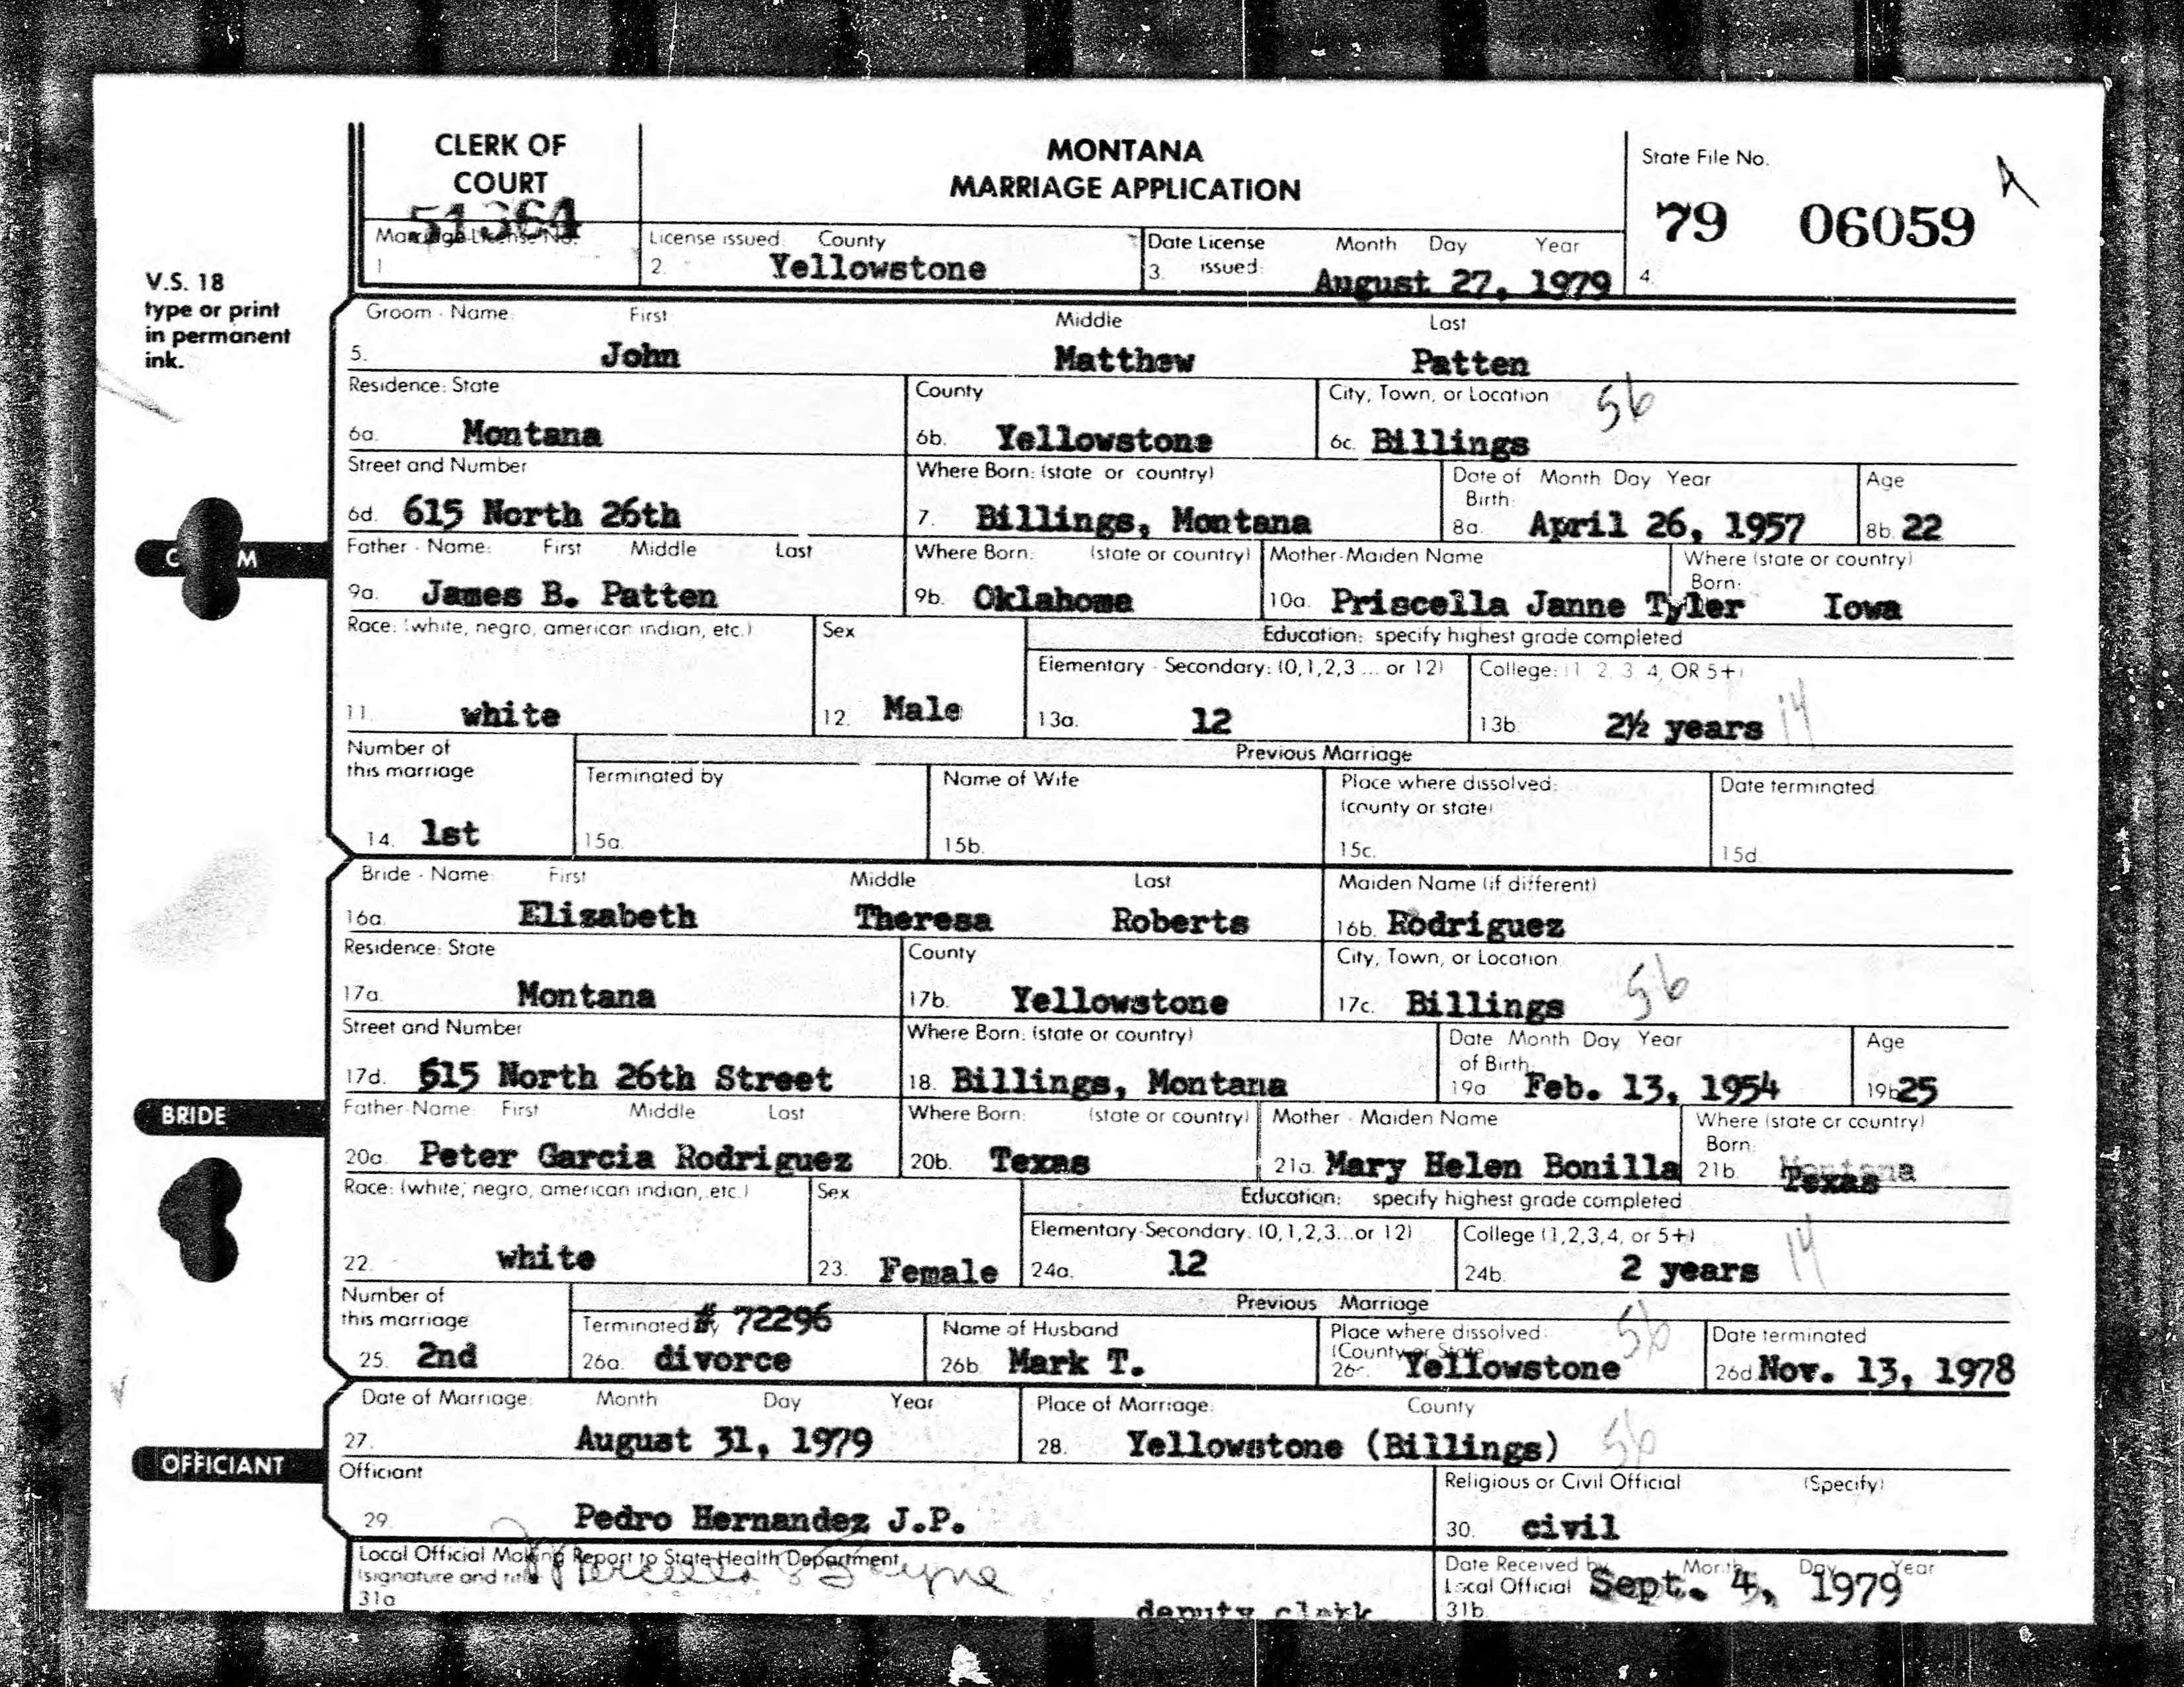 CLERK OF COURT
MONTANA
MARRIAGE APPLICATION
State File No.
79 06059
4.
51364
Marriage License No.
1
License issued: County
2. Yellowstone
Date License issued: Month Day Year
3. August 27, 1979
V.S. 18
type or print
in permanent
ink.
Groom - Name: First Middle Last
5. John Matthew Patten
Residence: State County City, Town, or Location 56
6a. Montana 6b. Yellowstone 6c. Billings
Street and Number Where Born: (state or country) Date of Birth: Month Day Year Age
6d. 615 North 26th 7. Billings, Montana 8a. April 26, 1957 8b. 22
Father - Name: First Middle Last Where Born: (state or country) Mother-Maiden Name Where (state or country) Born:
9a. James B. Patten 9b. Oklahoma 10a. Priscella Janne Tyler Iowa
Race: (white, negro, american indian, etc.) Sex Education: specify highest grade completed
Elementary - Secondary: (0,1,2,3 ... or 12) College: (1 2, 3 4, OR 5+)
11. white 12. Male 13a. 12 13b. 2½ years 14
Number of this marriage Previous Marriage
Terminated by Name of Wife Place where dissolved: (county or state) Date terminated
14. 1st 15a. 15b. 15c. 15d.
Bride - Name: First Middle Last Maiden Name (if different)
16a. Elizabeth Theresa Roberts 16b. Rodriguez
Residence: State County City, Town, or Location
17a. Montana 17b. Yellowstone 17c. Billings 56
Street and Number Where Born: (state or country) Date of Birth: Month Day Year Age
17d. 615 North 26th Street 18. Billings, Montana 19a Feb. 13, 1954 19b 25
BRIDE
Father-Name: First Middle Last Where Born: (state or country) Mother - Maiden Name Where (state or country) Born:
20a. Peter Garcia Rodriguez 20b. Texas 21a. Mary Helen Bonilla 21b. Montana Texas
Race: (white, negro, american indian, etc.) Sex Education: specify highest grade completed
Elementary-Secondary: (0,1,2,3...or 12) College (1,2,3,4, or 5+)
22. white 23. Female 24a. 12 24b. 2 years 14
Number of this marriage Previous Marriage
Terminated by # 72296 Name of Husband Place where dissolved: (County or State) 56 Date terminated
25. 2nd 26a. divorce 26b. Mark T. 26c. Yellowstone 26d. Nov. 13, 1978
Date of Marriage: Month Day Year Place of Marriage: County
27. August 31, 1979 28. Yellowstone (Billings) 56
OFFICIANT
Officiant Religious or Civil Official (Specify)
29. Pedro Hernandez J.P. 30. civil
Local Official Making Report to State Health Department
(signature and title)
31a deputy clerk
Date Received by Local Official Month Day Year
31b. Sept. 4, 1979